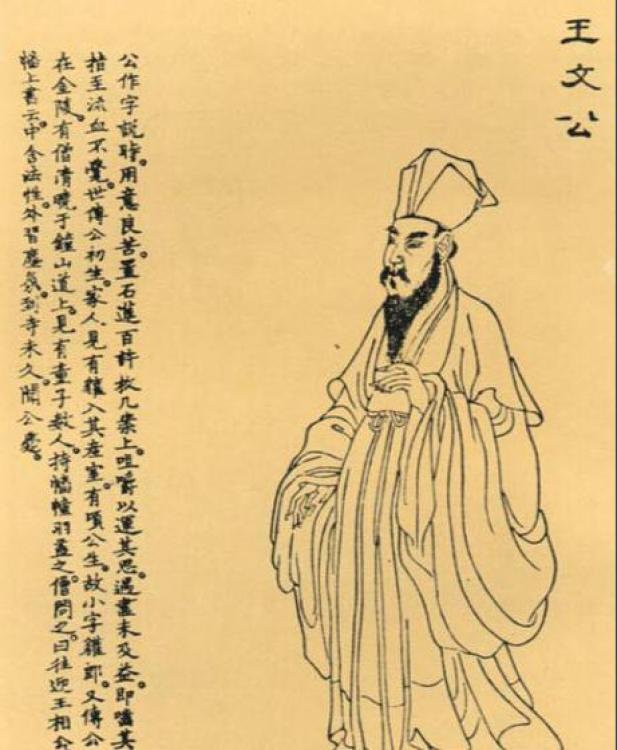 王文公
公作字說時。用意良苦。置石蓮百許枚几案上。咀嚼以運其思。遇盡未及益。即嚙其
指至流血不覺。世傳公初生。家人見有獾入其產室。有頃公生。故小字獾郎。又傳公
在金陵。有僧清曉于鐘山道上。見有童子數人。持幡幢羽蓋之。僧問之。曰往迎王相公
幡上書云。中含法性。外習塵氛。到寺未久。聞公薨。